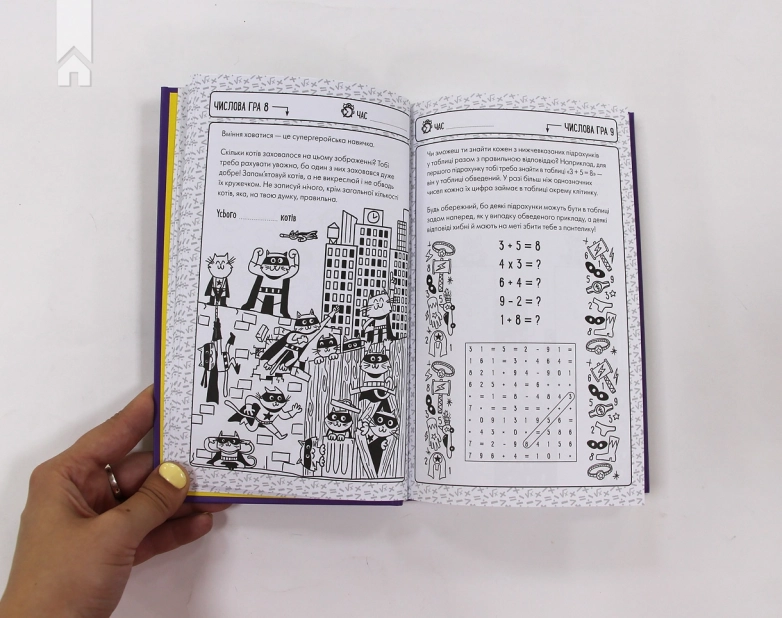 ЧИСЛОВА ГРА 8
ЧАС
Вміння ховатися — це супергеройська навичка.
Скільки котів заховалося на цьому зображенні? Тобі
треба рахувати уважно, бо один з них заховався дуже
добре! Запам'ятовуй котів, а не викреслюй і не обводь
їх кружечком. Не записуй нічого, крім загальної кількості
котів, яка, на твою думку, правильна.
Усього .............. котів
ЧАС
ЧИСЛОВА ГРА 9
Чи зможеш ти знайти кожен з нижчевказаних підрахунків
у таблиці разом з правильною відповіддю? Наприклад, для
першого підрахунку тобі треба знайти в таблиці «3 + 5 = 8» —
він у таблиці обведений. У разі більш ніж однозначних
чисел кожна їх цифра займає в таблиці окрему клітинку.
Будь обережний, бо деякі підрахунки можуть бути в таблиці
задом наперед, як у випадку обведеного прикладу, а деякі
відповіді хибні й мають на меті збити тебе з пантелику!
3 + 5 = 8
4 x 3 = ?
6 + 4 = ?
9 - 2 = ?
1 + 8 = ?